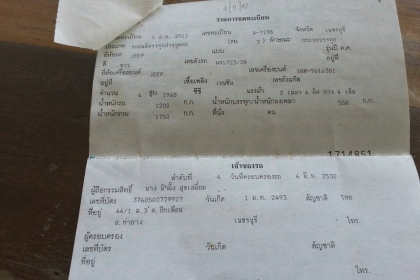 รายการจดทะเบียน
วันจดทะเบียน 5 ส.ค. 2512 เลขทะเบียน จังหวัด เพชรบุรี
ประเภท รถยนต์ ลักษณะ
ยี่ห้อรถ JEEP แบบ รุ่นปี ค.ศ.
สี ขาว เลขตัวรถ อยู่ที่
ยี่ห้อเครื่องยนต์ JEEP เลขเครื่องยนต์
อยู่ที่ เชื้อเพลิง เบนซิน เลขถังแก๊ส
จำนวน 4 สูบ 1968 ซีซี แรงม้า 2 เพลา 4 ล้อ ยาง 4 เส้น
น้ำหนักรถ 1200 ก.ก. น้ำหนักบรรทุก/น้ำหนักลงเพลา 550 ก.ก.
น้ำหนักรวม 1750 ก.ก. ที่นั่ง คน
1714851
เจ้าของรถ
ลำดับที่ 4 วันที่ครอบครองรถ 6 มิ.ย. 2532
ผู้ถือกรรมสิทธิ์ นาง
เลขที่บัตร 3760500779927 วันเกิด 1 ม.ค. 2493 สัญชาติ ไทย
ที่อยู่ 44/1 ม.3 ต.ปึกเตียน
อ.ท่ายาง เพชรบุรี โทร.
ผู้ครอบครอง
เลขที่บัตร วันเกิด สัญชาติ
ที่อยู่ โทร.